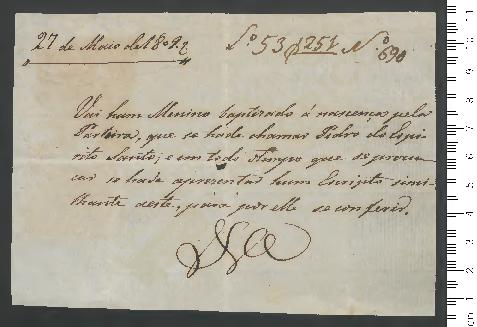 27 de Maio de 1809.
L.º 53 f 251 N.º 690
Vai hum Menino baptizado á nascença pela
Parteira, que se hade chamar Pedro do Espi-
rito Santo; e em todo o tempo que se procu-
car se hade aprezentar hum Escripto simi-
lhante aeste, para por elle se conferir.